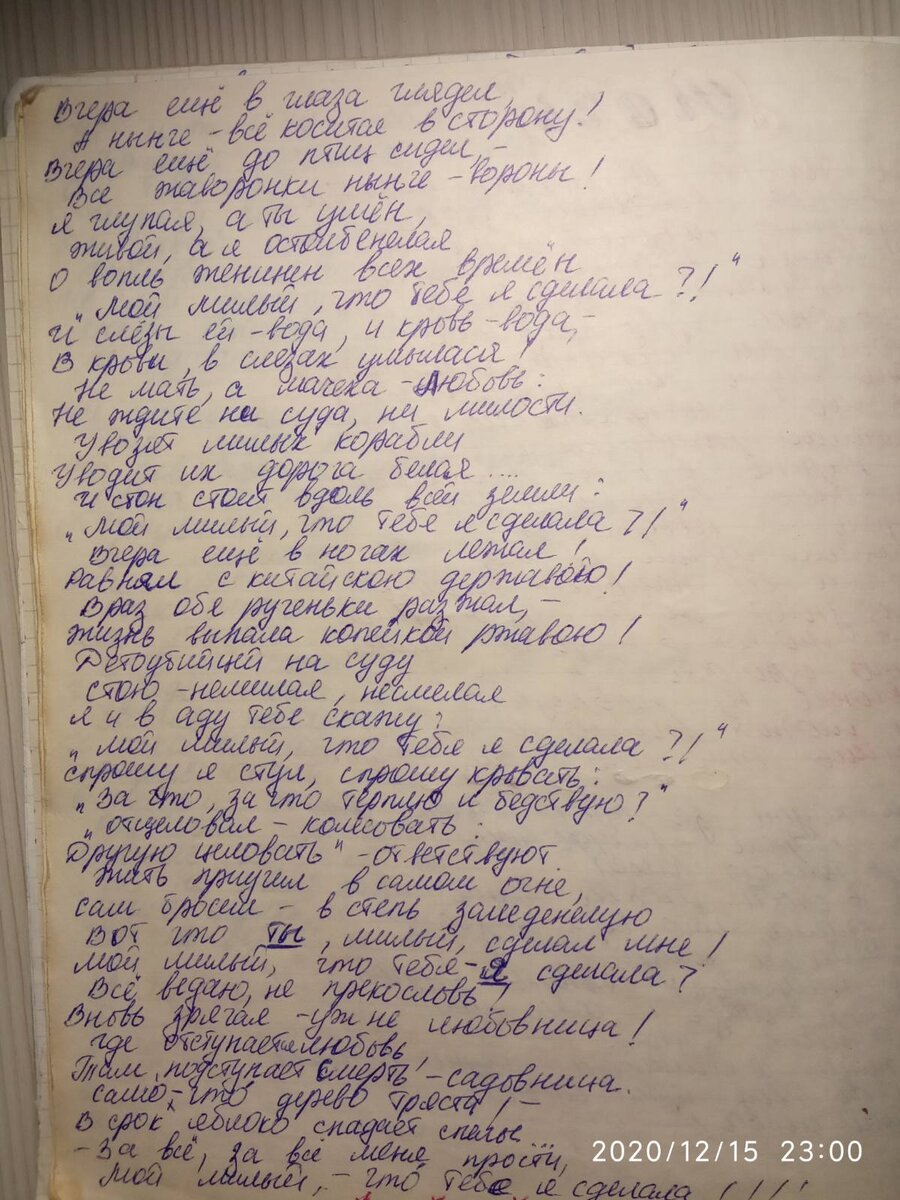 Вчера ещё в глаза глядел,
А нынче - всё косится в сторону!
Вчера ещё до птиц сидел, -
Все жаворонки нынче - вороны!
Я глупая, а ты умён,
живой, а я остолбенелая
О вопль женщин всех времён
"Мой милый, что тебе я сделала?!"
И слёзы ей - вода, и кровь - вода, -
В крови, в слезах умылася!
Не мать, а мачеха - Любовь:
Не ждите ни суда, ни милости.
Увозят милых корабли
Уводит их дорога белая ....
И стон стоит вдоль всей земли:
"Мой милый, что тебе я сделала?!"
Вчера ещё в ногах лежал!
Равнял с китайскою державою!
Враз обе рученьки разжал, -
Жизнь выпала копейкой ржавою!
Детоубийцей на суду
стою - немилая, несмелая
Я и в аду тебе скажу:
"Мой милый, что тебя я сделала?!"
спрошу я стул, спрошу кровать:
"За что, за что терплю и бедствую?"
"отцеловал - колесовать:
Другую целовать" - ответствуют
Жить приучил в самом огне,
сам бросил - в степь заледенелую
Вот что ты, милый, сделал мне!
Мой милый, что тебя - я сделала?
Всё ведаю, не прекословь!
Вновь зрячая - уж не любовница!
где отступается любовь
Там подступает Смерть - садовница.
само - что дерево трясти! -
В срок яблоко спадает спелые
- За всё, за всё меня прости,
Мой милый, - что тебе я сделала!!!!
2020/12/15 23:00